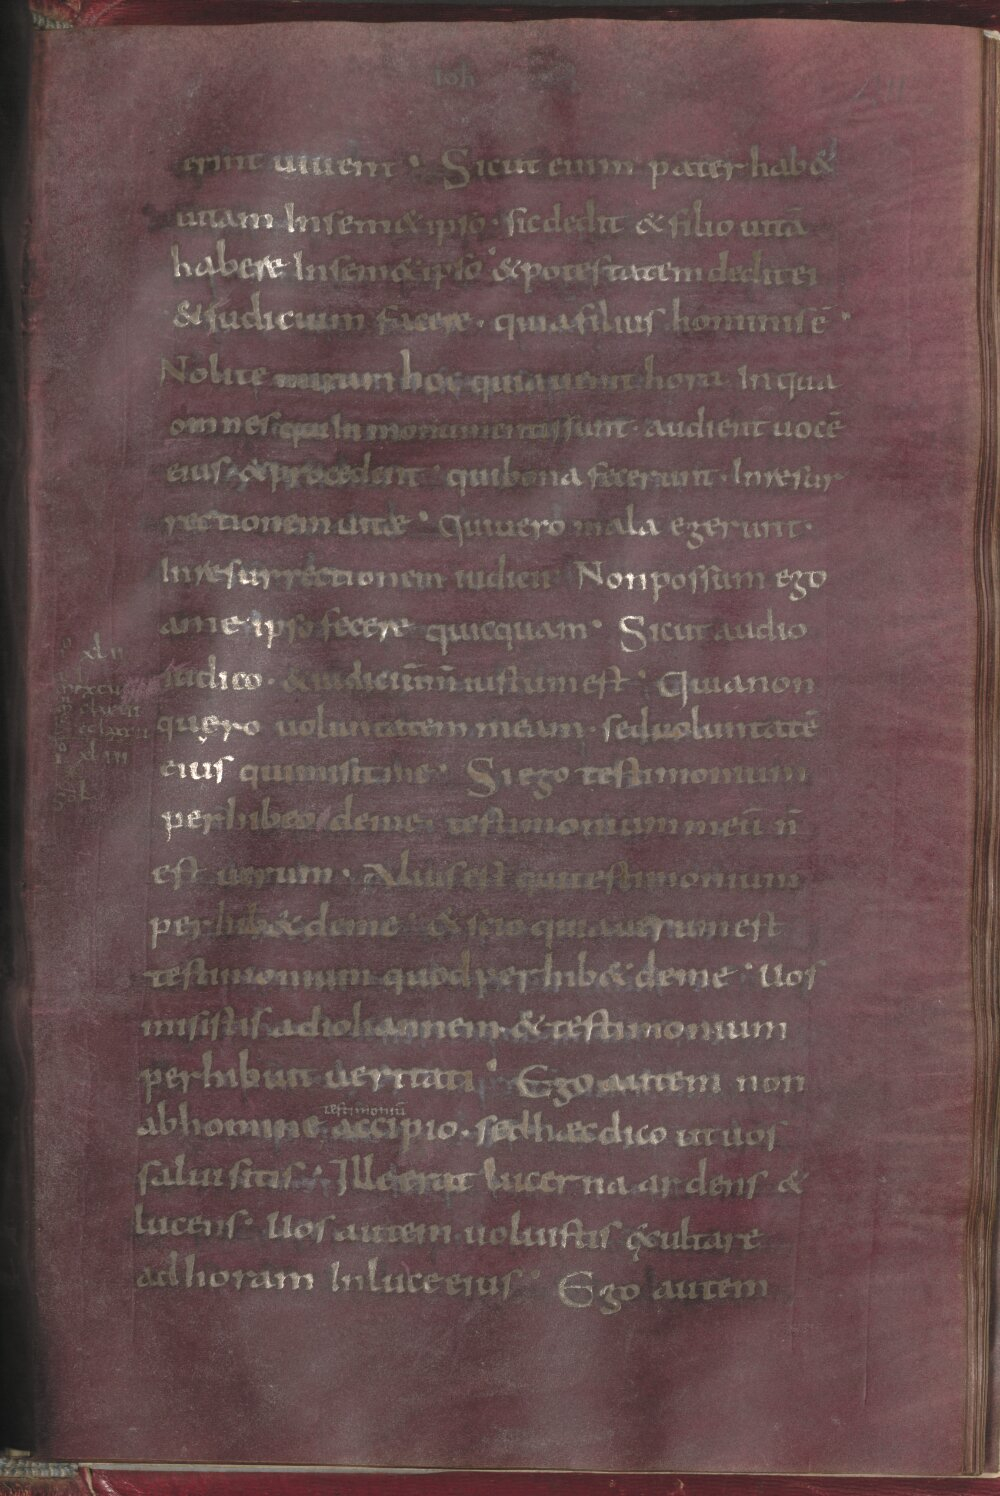 ioh
erint uiuent · Sicut enim pater hab&
uitam In sem&ipso · sic dedit & filio uitā
habere In sem&ipso · & potestatem dedit ei
& iudicium facere · quia filius hominis ē ·
Nolite mirari hoc quia uenit hora In qua
omnes qui In monumentis sunt · audient uocē
eius · & procedent · qui bona fecerunt · In resur
rectionem uitae · Qui uero mala egerunt ·
In resurrectionem iudicii Non possum ego
a me ipso facere quicquam · Sicut audio
iudico · & iudiciū m̄ iustum est · Quia non
quęro uoluntatem meam · sed uoluntatē
eius qui misit me · Si ego testimonium
perhibeo de me · testimonium meū n̄
est uerum · Alius est qui testimonium
perhib& de me · & scio quia uerum est
testimonium quod perhib& de me · Uos
misistis ad iohannem · & testimonium
perhibuit ueritati · Ego autem non
testimoniū
ab homine accipio · sed haec dico ut uos
salui sitis · Ille erat lucerna ardens &
lucens · Uos autem uoluistis exultare
ad horam In luce eius · Ego autem